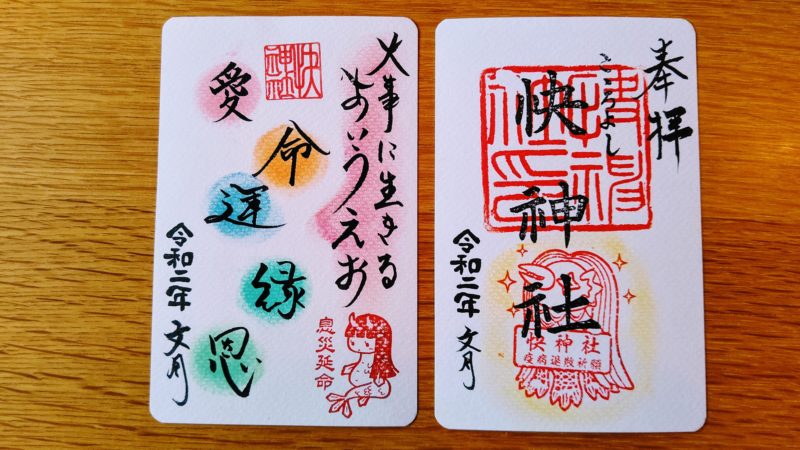 大事に生きる
あいうえお
快神社
愛
命
運
縁
恩
令和二年 文月
息災延命
奉拝
こころよし
快神社
令和二年 文月
快神社
疫病退散祈願